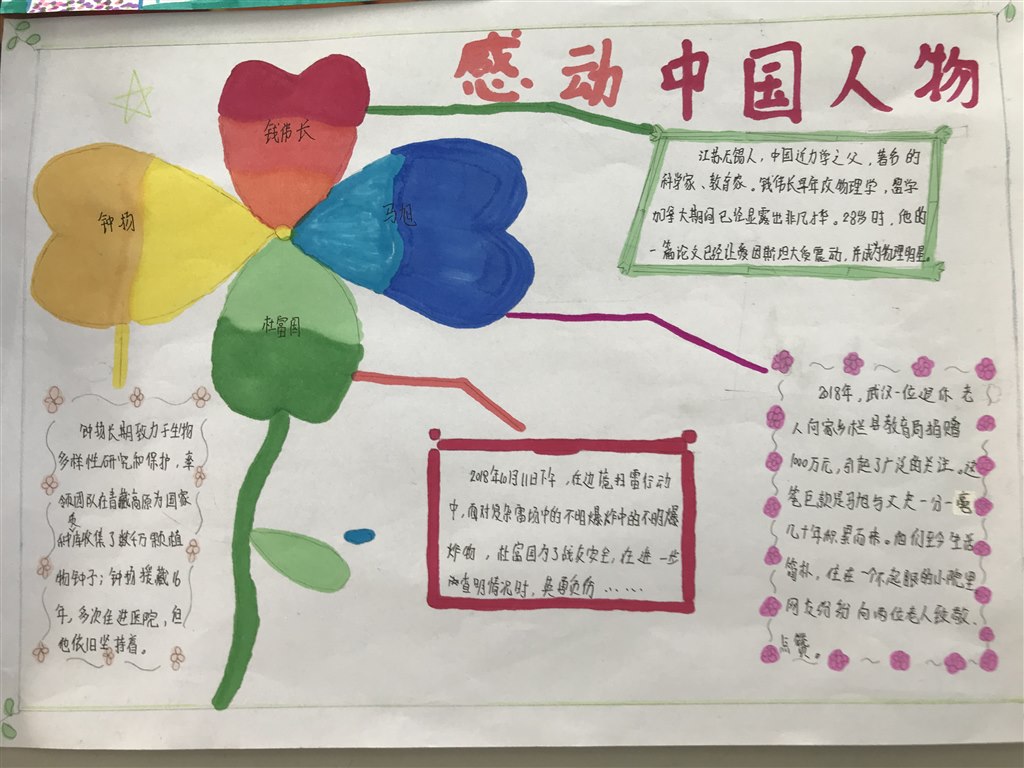 感动中国人物
钱伟长
钟扬
马旭
杜富国
江苏无锡人，中国近力学之父，著名的
科学家、教育家。钱伟长早年攻物理学，留学
加拿大期间已经显露出非凡才华。28岁时，他的
一篇论文已经让爱因斯坦大受震动，并成为物理明星。
钟扬长期致力于生物
多样性研究和保护，率
领团队在青藏高原为国家
种质库收集了数千万颗植
物钟子；钟扬援藏16
年，多次住进医院，但
他依旧坚持着。
2018年10月11日下午，在边境扫雷行动
中，面对复杂雷场中的不明爆炸中的不明爆
炸物，杜富国为了战友安全，在进一步
查明情况时，英勇负伤……
2018年，武汉一位退休老
人向家乡栏县教育局捐赠
1000万元，引起了广泛的关注。这
笔巨款是马旭与丈夫一分一毫
几十年积累而来。他们至今生活
简朴，住在一个不起眼的小院里
网友纷纷向两位老人致敬、
点赞。